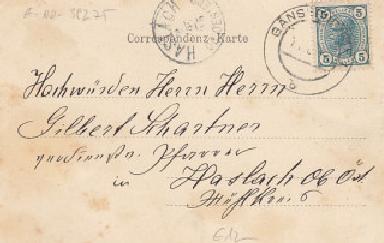 A-OÖ-38275
HASLACH
GÄNS
Correspondenz-Karte
5 5
5 5
Hochwürden Herrn Herrn
Gilbert Schartner
Pfarrer
in Haslach ob Öst
Mühlkreis
€12-